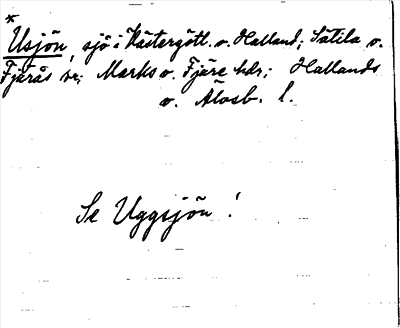 *
Usjön, sjö i Västergötl. o. Halland; Sätila o.
Fjärås sr; Marks o. Fjäre hdr; Hallands
o. Älvsb. l.
Se Uggsjön!